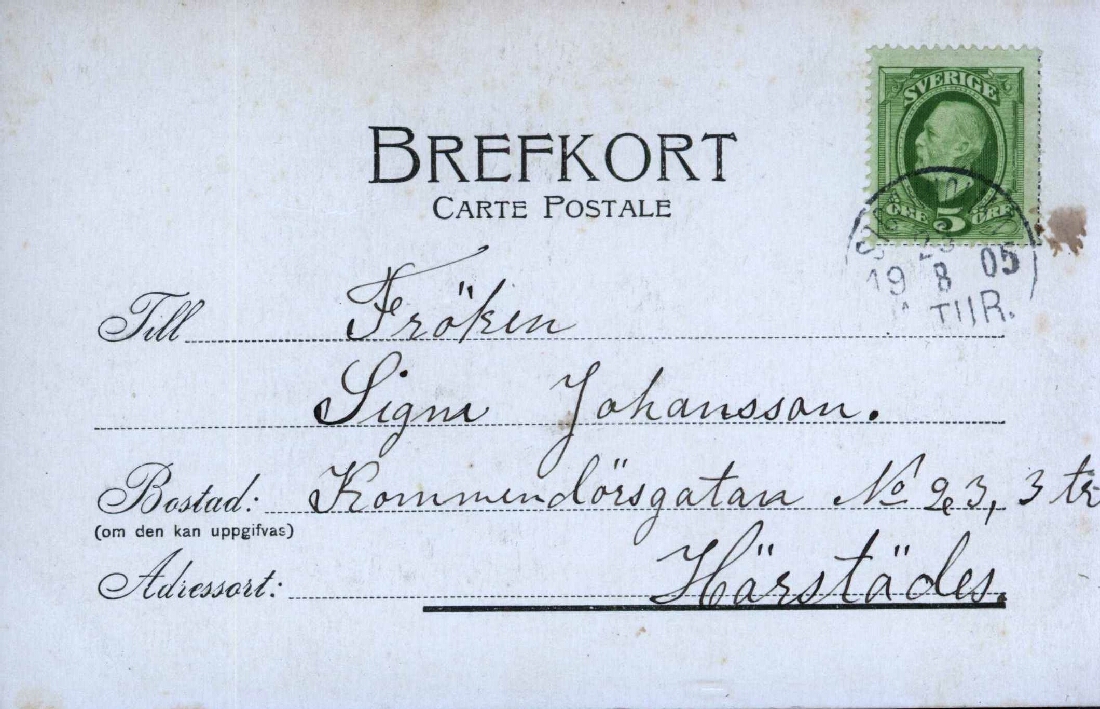 SVERIGE
ÖRE 5 ÖRE
BREFKORT
CARTE POSTALE
19 8 05
TUR.
Till Fröken
Signe Johansson.
Bostad: Kommendörsgatan No 23, 3 tr
(om den kan uppgifvas)
Adressort: Härstädes.